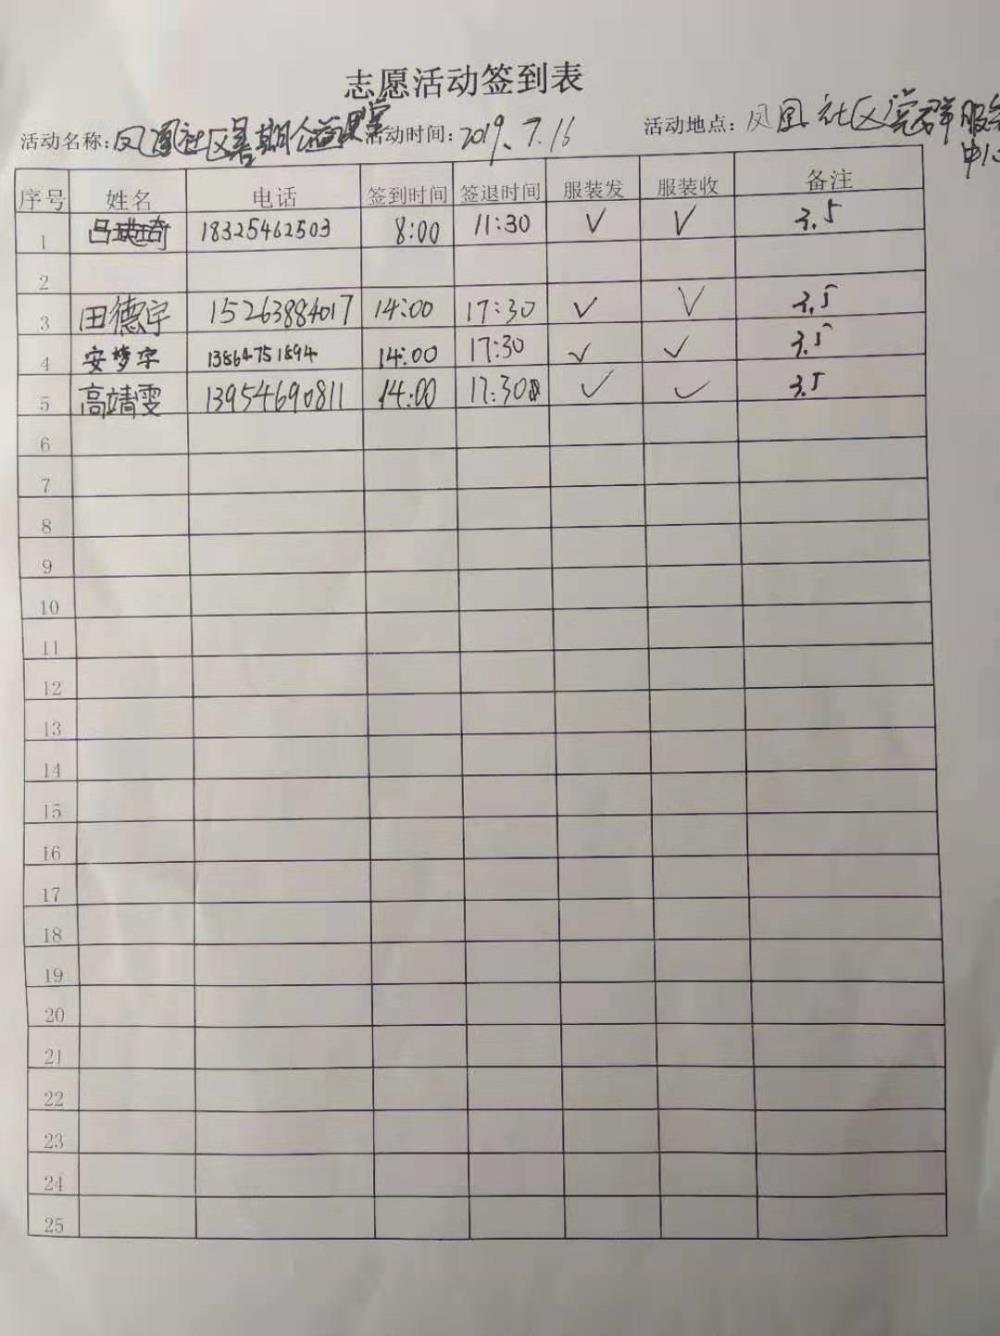 志愿活动签到表
活动名称：凤凰社区暑期公益课堂 活动时间：2019.7.16 活动地点：凤凰社区党群服务中心
序号 姓名 电话 签到时间 签退时间 服装发 服装收 备注
1 18325462503 8:00 11:30 √ √ 3.5
2
3 田德宇 15263884017 14:00 17:30 √ √ 3.5
4 安梦宇 13864751894 14:00 17:30 √ √ 3.5
5 高靖雯 13954690811 14:00 17:30 √ √ 3.5
6
7
8
9
10
11
12
13
14
15
16
17
18
19
20
21
22
23
24
25